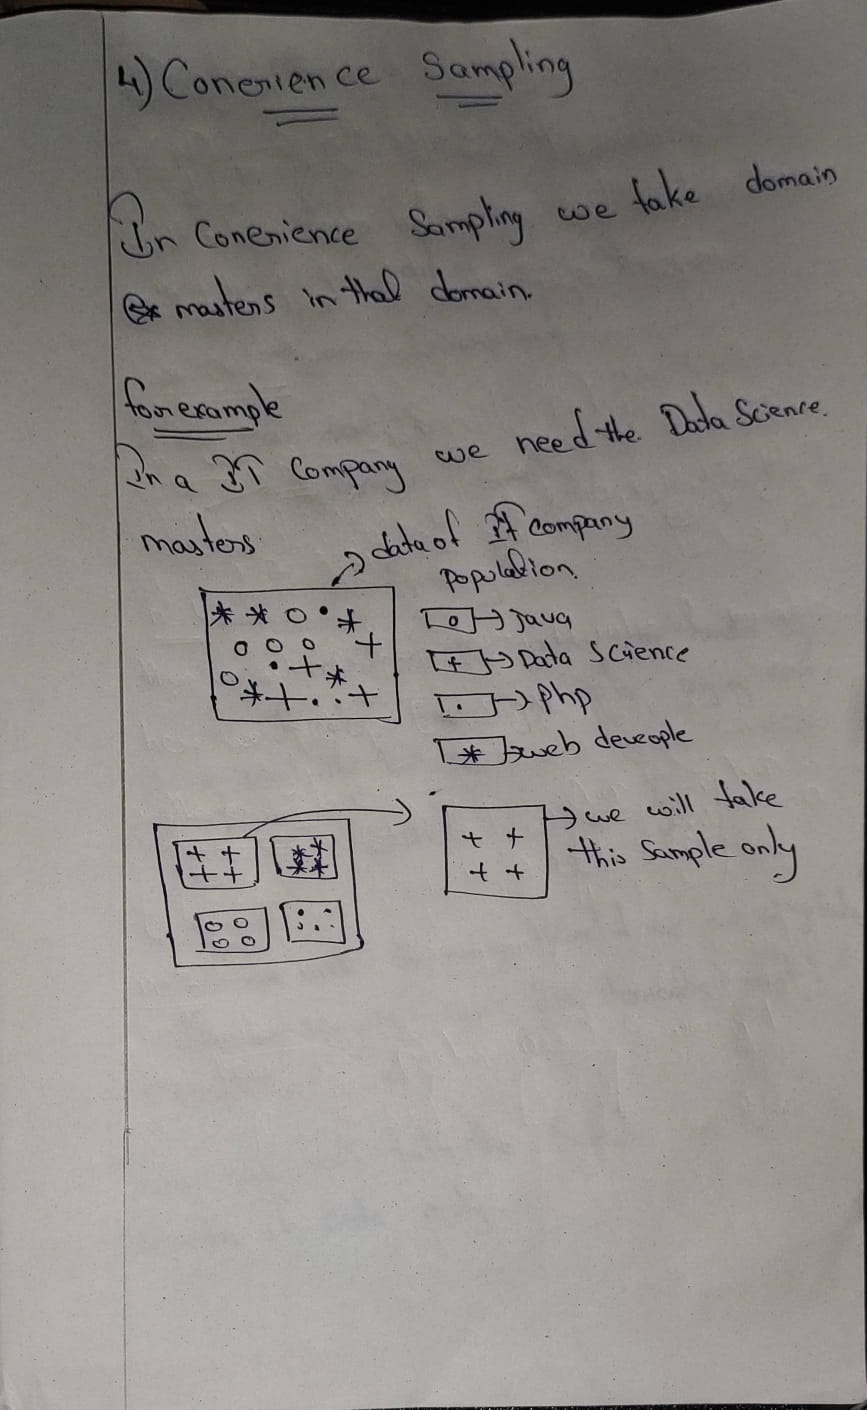 4) Conerience Sampling
In Conerience Sampling we take domain
masters in that domain.
for example
In a IT Company we need the Data Science.
masters
data of IT company
population.
o → Java
+ → Data Science
. → Php
* → web deveople
we will take
this Sample only